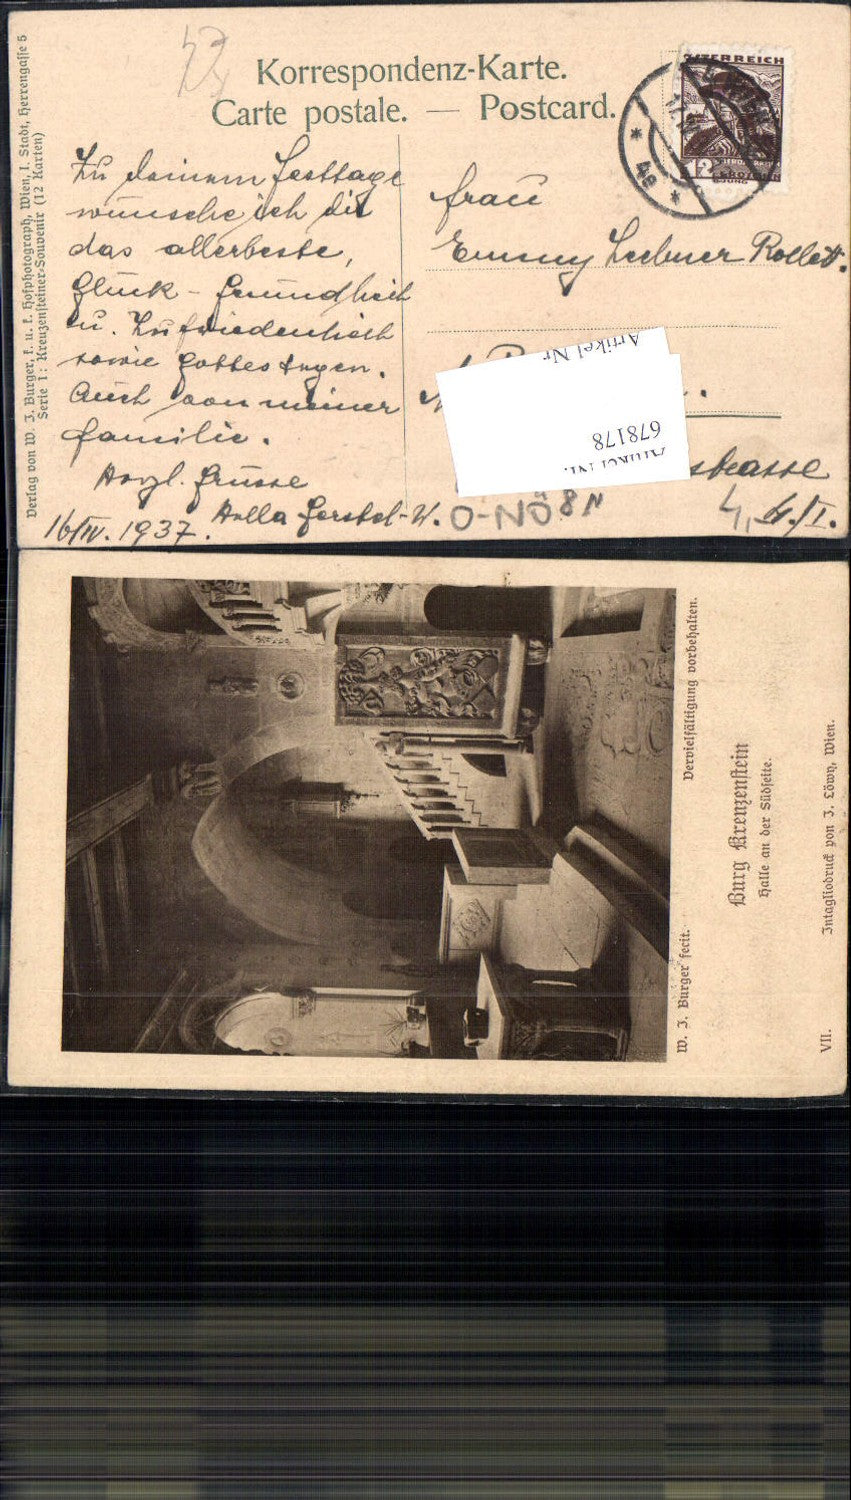 Korrespondenz-Karte.
Carte postale. — Postcard.
Verlag von W. J. Burger, k. u. k. Hofphotograph, Wien, I. Stadt, Herrengasse 5
Serie I: Kreuzensteiner-Souvenir (12 Karten)
ÖSTERREICH
12
WIEN
* 4e *
Zu deinem Festtage
wünsche ich dir
das allerbeste,
Glück - Gesundheit
u. Zufriedenheit
sowie Gottes Segen.
Auch von meiner
Familie.
Herzl. Grüsse
Hella
16/IV. 1937.
Frau
Emmy Lechner Rollett.
strasse
4, 4./I.
O-NÖ 8N
Artikel Nr
Artikel Nr.
678178
W. J. Burger fecit.
Vervielfältigung vorbehalten.
Burg Kreuzenstein
Halle an der Südseite.
VII.
Intagliodruck von J. Löwy, Wien.